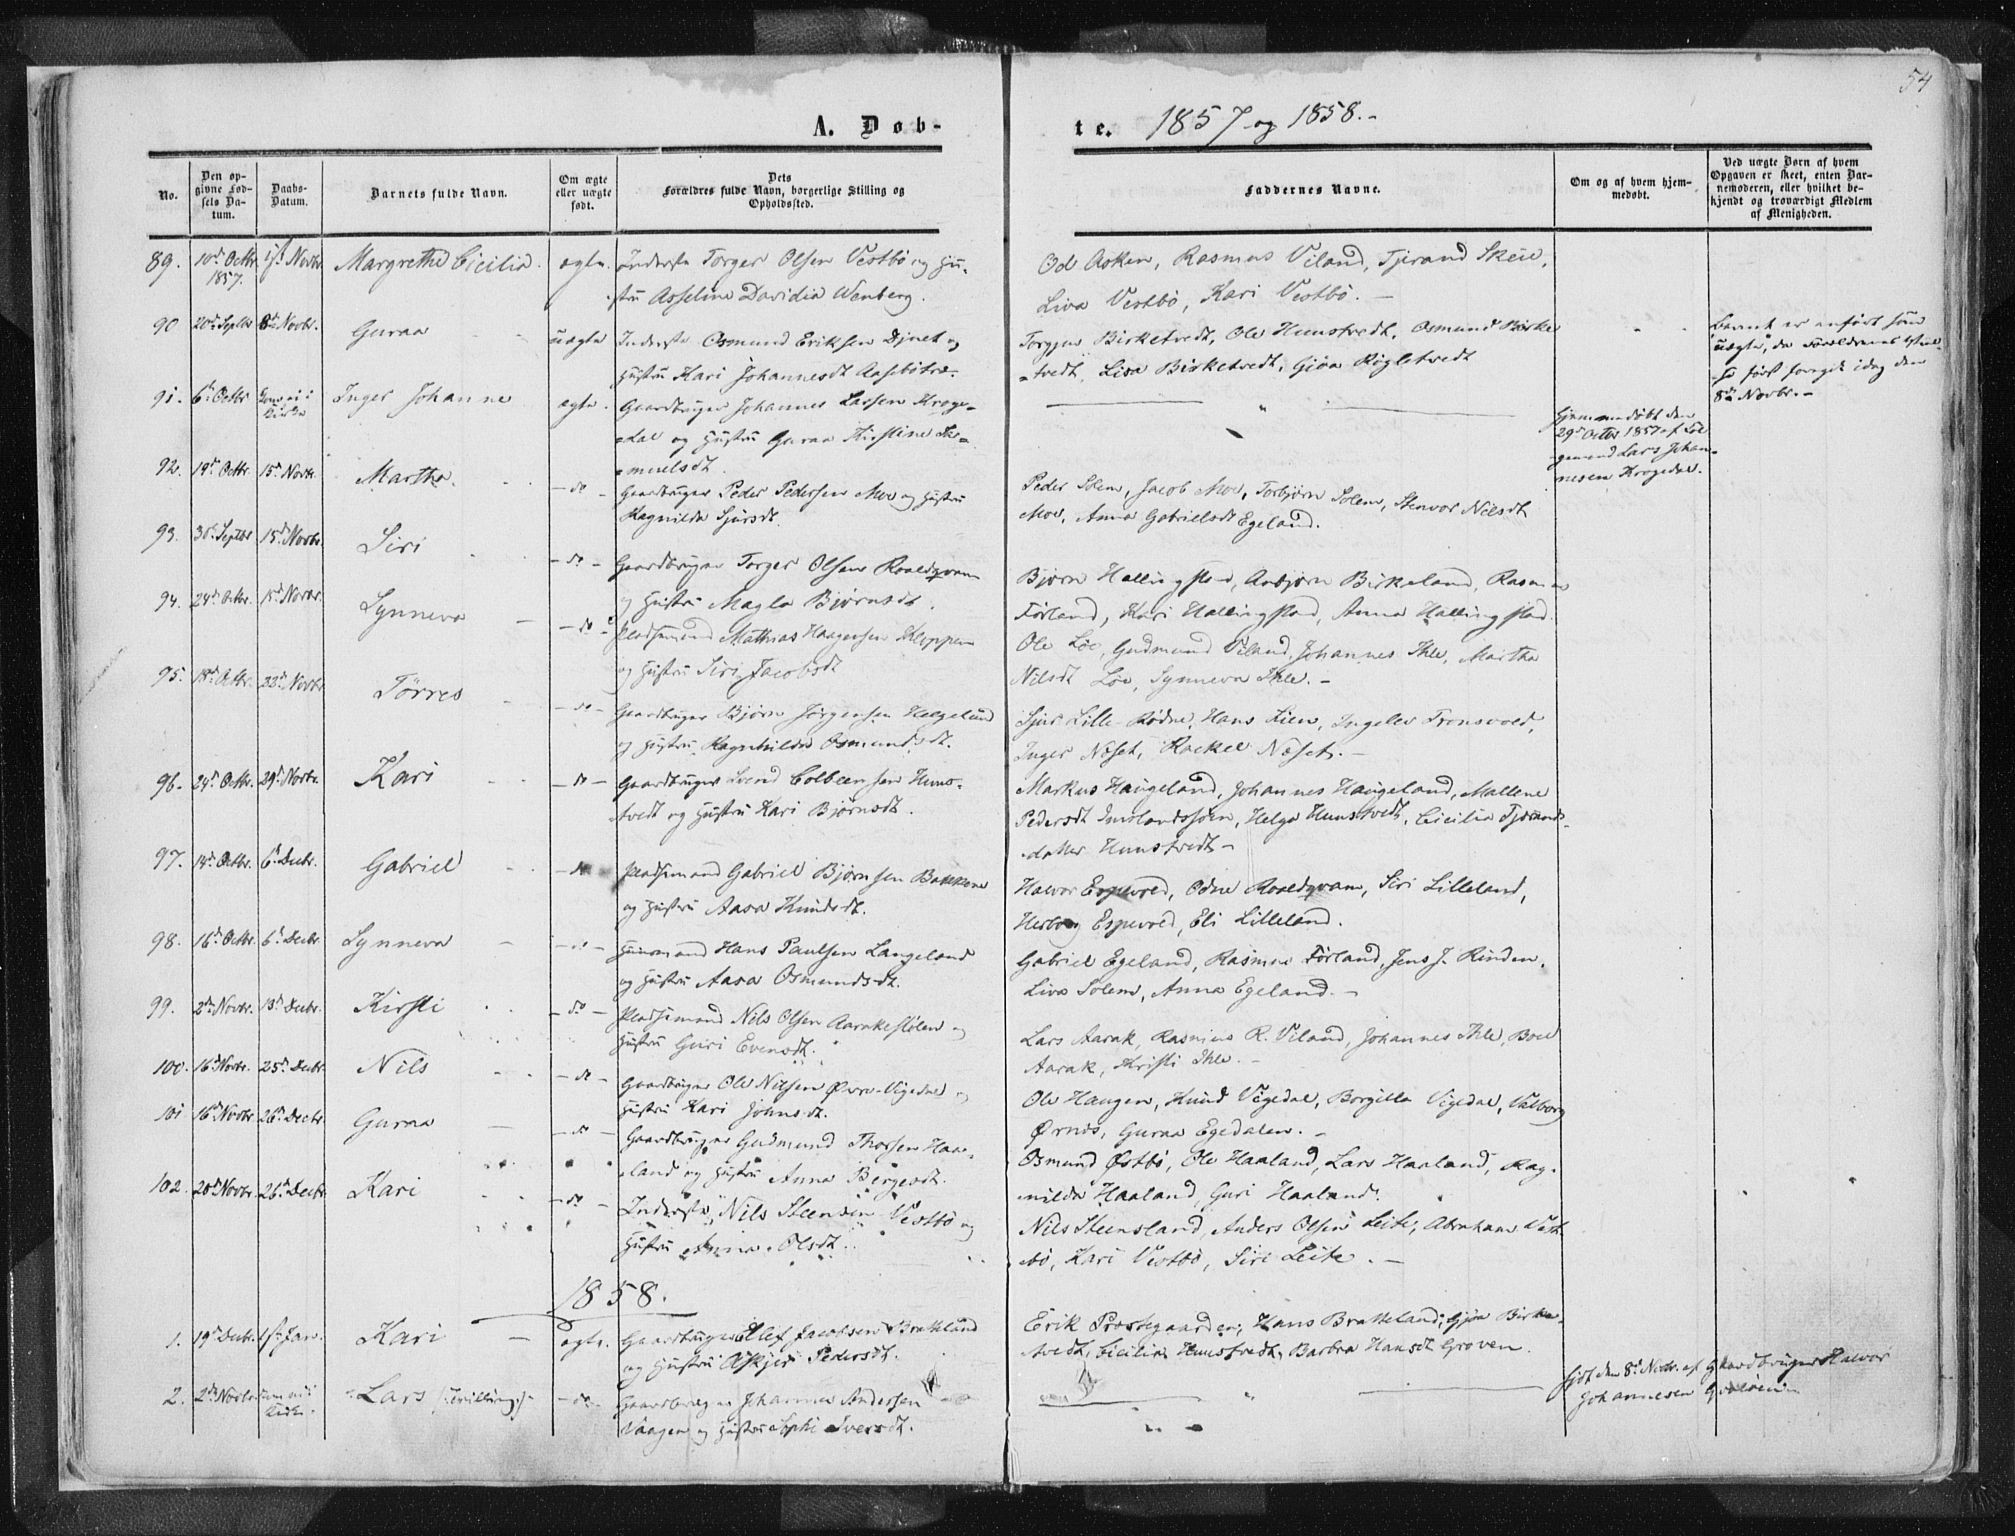 54
A. Døb-
te. 1857 og 1858.-
No.
Den op-
givne Fød-
sels Da-
tum.
Daabs-
Datum.
Barnets fulde Navn.
Om ægte
eller uægte
født.
Dets
Forældres fulde Navn, borgerlige Stilling og
Opholdssted.
Faddernes Navne.
Om og af hvem hjem-
medøbt.
Ved uægte Børn af hvem
Opgaven er skeet, enten Bar-
nemoderen, eller hvilket be-
kjendt og troværdigt Medlem
af Menigheden.
89. 10de Octbr 1857. 1ste Novbr. Margrethe Cicilia. ægte. Inderste Torger Olsen Vestbø og Hu-
stru Asseline Davidia Wenberg.
Od Asken, Rasmus Viland, Tjerand Skeie,
Liva Vestbø, Kari Vestbø. -
90 20de Septbr 8de Novbr. Guraa uægte Inderste Osmund Eriksen Djnet og
Hustru Kari Johannesdt Aasebötræ.
Torgjer Birketvedt, Ole Hunstvedt, Osmund Birke
-tvedt, Lisa Birketvedt, Gjøa Røgletvedt
Barnet er anført som
uægte, da Forældrenes
først foregik idag den
8de Novbr. -
91. 6te Octbr Inger Johanne ægte. Gaardbruger Johannes Larsen Kroge-
dal og Hustru Guraa Kirstine Sa-
muelsdt.
Hjemmedöbt den
29de Octbr 1857 af
Lars Johan-
nesen Krogedal.
92. 19de Octbr 15de Novbr. Martha. - do - Gaardbruger Peder Pedersen Moe og Hustru
Ragnilda Sjursdt.
Peder Solem, Jacob Moe, Torbjørn Solem, Stenvor Nilsdt
Moe, Anna Gabrielsdt Egeland.
93. 30te Septbr 15de Novbr. Siri - do - Gaardbruger Torger Olsen Roaldqvam
og Hustru Magla Bjørnsdt.
Bjørn Hallingstad, Asbjørn Birkeland, Rasmus
Førland, Kari Hallingstad, Anna Hallingstad.
94. 24de Octbr. 15de Novbr. Synneva - do - Pladsemand Mathias Haagensen Kloppen
og Hustru Siri Jacobsdt
Ole Löe, Gudmund Viland, Johannes Ihle, Martha
Nilsdt Löe, Synneva Ihle. -
95. 18de Octbr. 22de Novbr Tørres - do - Gaardbruger Bjørn Jørgensen Helgeland
og Hustru Ragnhilda Osmundsdt.
Sjur Lille Rødne, Hans Lien, Ingelev Tronsvoed,
Inger Næset, Rackel Næset. -
96. 24de Octbr. 29de Novbr. Kari - do - Gaardbruger Svend Colbeensen Huns-
tvedt og Hustru Kari Bjørnsdt.
Markus Haugeland, Johannes Haugeland, Mallene
Pedersdt Imslandssjøen, Helga Hunstvedt, Cicilia Tjerands-
datter Hunstvedt -
97. 14de Octbr. 6te Decbr. Gabriel - do Pladsemand Gabriel Bjørnsen Bakkene
og Hustru Aasa Knudsdt.
Halvor Espevold, Odne Roaldqvam, Siri Lilleland,
Herborg Espevold, Eli Lilleland.
98. 16de Octbr. 6te Decbr. Synneva - do - Huusmand Hans Paulsen Langeland
og Hustru Aasa Osmundsdt.
Gabriel Egeland, Rasmus Førland, Jens J. Rinden,
Liva Solem, Anna Egeland. -
99. 2den Novbr. 13de Decbr. Kirsti - do - Pladsemand Nils Olsen Aarakestølen og
Hustru Guri Evensdt.
Lars Aarak, Rasmus R. Viland, Johannes Ihle, Boel
Aarak, Kristi Ihle. -
100. 16de Novbr. 25de Decbr. Nils - do - Gaardbruger Ole Nilsen Øvre-Vigedal og
Hustru Kari Johnsdt.
Ole Haugen, Knud Vigedal, Borgilla Vigedal, Valborg
Ørnes, Guraa Egedalen. -
101 16de Novbr 26de Decbr. Guraa - do - Gaardbruger Gudmund Thorsen Haa-
land og Hustru Anna Børgesdt.
Osmund Østbø, Ole Haaland, Lars Haaland, Rag-
nilda Haaland, Guri Haaland.
102. 20de Novbr. 26de Decbr. Kari - do - Inderste Nils Steensen Vestbø og
Hustru Anna Olsdt.
Nils Steensland, Anders Olsen Leite, Abraham Vest-
bø, Kari Vestbø, Siri Leite. -
1858.
1. 19de Decbr. 1ste Jan. Kari - ægte. Gaardbruger Ellef Jacobsen Brakeland
og Hustru Pedersdt.
Erik Præstegaarden, Hans Brakeland, Gjøa Birke-
tvedt, Cicilia Hunstvedt, Barbra Hansdt Groven.
2. 2den Novbr Lars (Tvilling) - do - Gaardbruger Johannes Andersen
Vaagen og Hustru Sophi Iversdt.
den 8de Novbr. af Gaardbruger Halvor
Johannesen